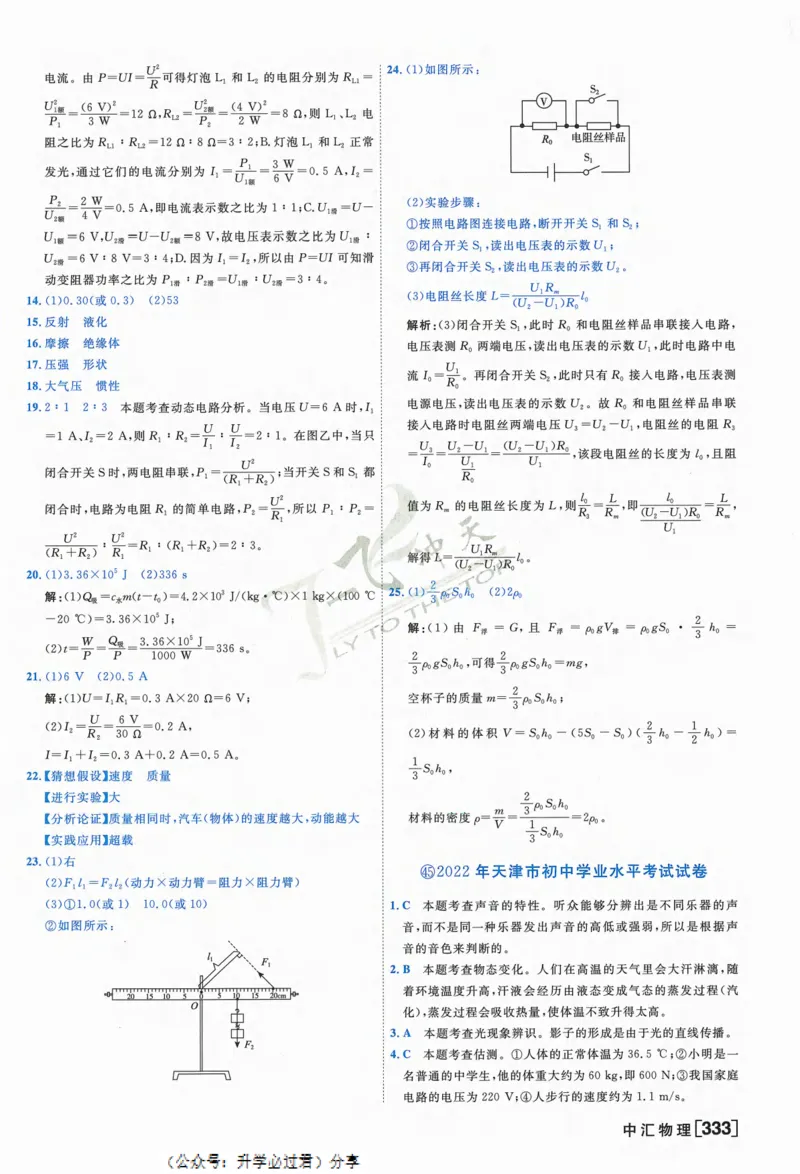 电流。由 P=UI=U²/R可得灯泡 L₁ 和 L₂ 的电阻分别为 R_L1=
U²₁额/P₁=(6 V)²/3 W=12 Ω,R_L2=U²₂额/P₂=(4 V)²/2 W=8 Ω,则 L₁、L₂ 电
阻之比为 R_L1∶R_L2=12 Ω∶8 Ω=3∶2;B.灯泡 L₁ 和 L₂ 正常
发光,通过它们的电流分别为 I₁=P₁/U₁额=3 W/6 V=0.5 A,I₂=
P₂/U₂额=2 W/4 V=0.5 A,即电流表示数之比为 1∶1;C.U₁滑=U-
U₁额=6 V,U₂滑=U-U₂额=8 V,故电压表示数之比为 U₁滑∶
U₂滑=6 V∶8 V=3∶4;D.因为 I₁=I₂,所以由 P=UI 可知滑
动变阻器功率之比为 P₁滑∶P₂滑=U₁滑∶U₂滑=3∶4。
14.(1)0.30(或 0.3) (2)53
15.反射 液化
16.摩擦 绝缘体
17.压强 形状
18.大气压 惯性
19.2∶1 2∶3 本题考查动态电路分析。当电压 U=6 A 时,I₁
=1 A、I₂=2 A,则 R₁∶R₂=U/I₁∶U/I₂=2∶1。在图乙中,当只
闭合开关 S 时,两电阻串联,P₁=U²/(R₁+R₂);当开关 S 和 S₁ 都
闭合时,电路为电阻 R₁ 的简单电路,P₂=U²/R₁,所以 P₁∶P₂=
U²/(R₁+R₂)∶U²/R₁=R₁∶(R₁+R₂)=2∶3。
20.(1)3.36×10⁵ J (2)336 s
解:(1)Q吸=c水m(t-t₀)=4.2×10³ J/(kg·℃)×1 kg×(100 ℃
-20 ℃)=3.36×10⁵ J;
(2)t=W/P=Q吸/P=3.36×10⁵ J/1000 W=336 s。
21.(1)6 V (2)0.5 A
解:(1)U=I₁R₁=0.3 A×20 Ω=6 V;
(2)I₂=U/R₂=6 V/30 Ω=0.2 A,
I=I₁+I₂=0.3 A+0.2 A=0.5 A。
22.【猜想假设】速度 质量
【进行实验】大
【分析论证】质量相同时,汽车(物体)的速度越大,动能越大
【实践应用】超载
23.(1)右
(2)F₁l₁=F₂l₂(动力×动力臂=阻力×阻力臂)
(3)①1.0(或 1) 10.0(或 10)
②如图所示:
l₁ F₁
20 15 10 5 0 5 10 15 20cm
O
F₂
24.(1)如图所示:
V S₂
R₀ 电阻丝样品
S₁
(2)实验步骤:
①按照电路图连接电路,断开开关 S₁ 和 S₂;
②闭合开关 S₁,读出电压表的示数 U₁;
③再闭合开关 S₂,读出电压表的示数 U₂。
(3)电阻丝长度 L=U₁Rₘ/(U₂-U₁)R₀ l₀
解析:(3)闭合开关 S₁,此时 R₀ 和电阻丝样品串联接入电路,
电压表测 R₀ 两端电压,读出电压表的示数 U₁,此时电路中电
流 I₀=U₁/R₀。再闭合开关 S₂,此时只有 R₀ 接入电路,电压表测
电源电压,读出电压表的示数 U₂。故 R₀ 和电阻丝样品串联
接入电路时电阻丝两端电压 U₃=U₂-U₁,电阻丝的电阻 R₃
=U₃/I₀=(U₂-U₁)/(U₁/R₀)=(U₂-U₁)R₀/U₁,该段电阻丝的长度为 l₀,且阻
值为 Rₘ 的电阻丝长度为 L,则l₀/R₃=L/Rₘ,即l₀/((U₂-U₁)R₀/U₁)=L/Rₘ,
解得 L=U₁Rₘ/(U₂-U₁)R₀ l₀。
25.(1)2/3 ρ₀S₀h₀ (2)2ρ₀
解:(1)由 F浮=G,且 F浮=ρ₀gV排=ρ₀gS₀·2/3 h₀=
2/3 ρ₀gS₀h₀,可得2/3 ρ₀gS₀h₀=mg,
空杯子的质量 m=2/3 ρ₀S₀h₀;
(2)材料的体积 V=S₀h₀-(5S₀-S₀)(2/3 h₀-1/2 h₀)=
1/3 S₀h₀,
材料的密度 ρ=m/V=(2/3 ρ₀S₀h₀)/(1/3 S₀h₀)=2ρ₀。
㊺2022 年天津市初中学业水平考试试卷
1.C 本题考查声音的特性。听众能够分辨出是不同乐器的声
音,而不是同一种乐器发出声音的高低或强弱,所以是根据声
音的音色来判断的。
2.B 本题考查物态变化。人们在高温的天气里会大汗淋漓,随
着环境温度升高,汗液会经历由液态变成气态的蒸发过程(汽
化),蒸发过程会吸收热量,使体温不致升得太高。
3.A 本题考查光现象辨识。影子的形成是由于光的直线传播。
4.C 本题考查估测。①人体的正常体温为 36.5 ℃;②小明是一
名普通的中学生,他的体重大约为 60 kg,即 600 N;③我国家庭
电路的电压为 220 V;④人步行的速度约为 1.1 m/s。
一飞冲天
FLY TO THE TOP
中汇物理[333]
(公众号:升学必过君)分享